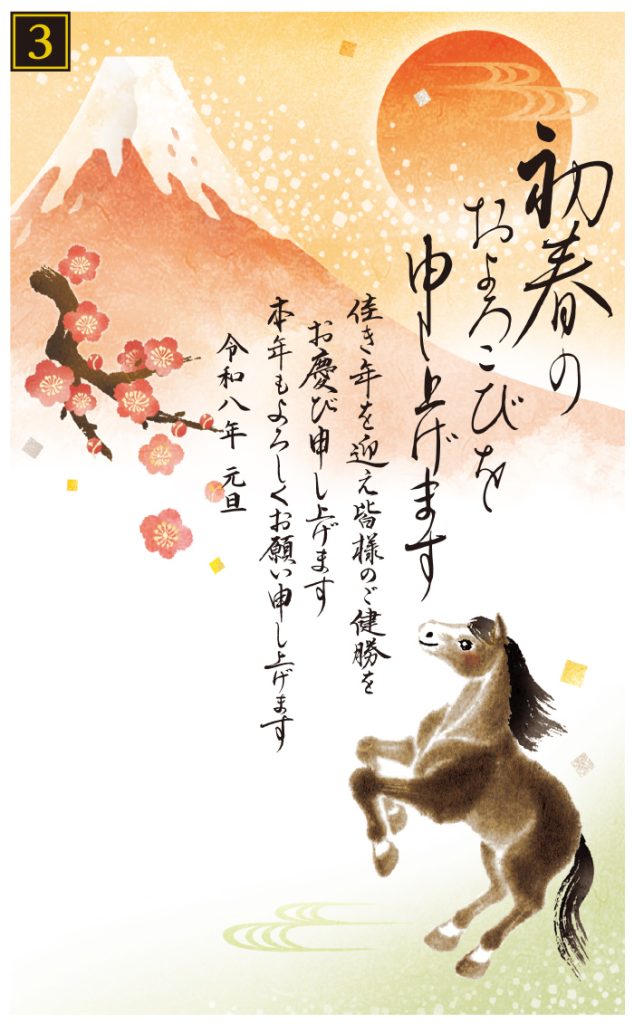 3
初春の
およろこびを
申し上げます
佳き年を迎え皆様のご健勝を
お慶び申し上げます
本年もよろしくお願い申し上げます
令和八年 元旦